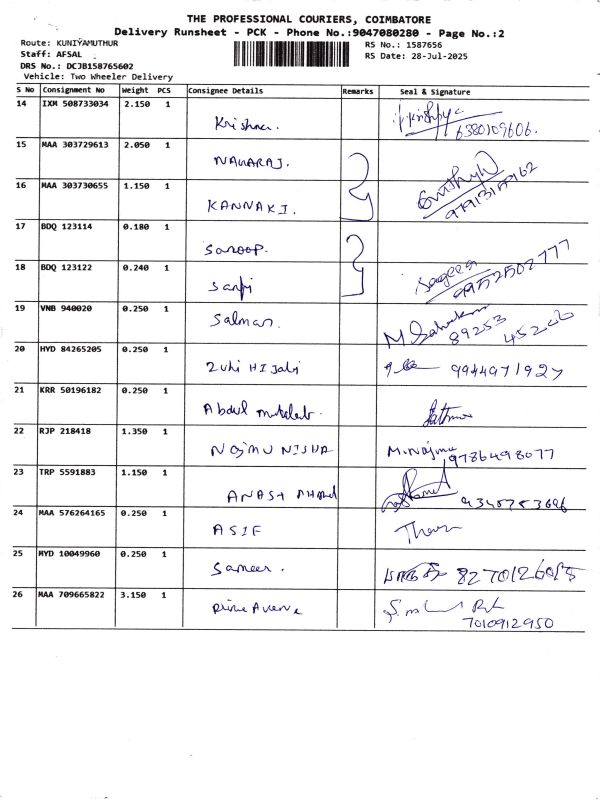 THE PROFESSIONAL COURIERS, COIMBATORE
Delivery Runsheet - PCK - Phone No.:9047080280 - Page No.:2
Route: KUNIYAMUTHUR
RS No.: 1587656
Staff: AFSAL
RS Date: 28-Jul-2025
DRS No.: DCJB158765602
Vehicle: Two Wheeler Delivery
S No Consignment No Weight PCS Consignee Details Remarks Seal & Signature
14 IXM 508733034 2.150 1
Krishna. 6380109606.
15 MAA 303729613 2.050 1
NAWARAJ.
16 MAA 303730655 1.150 1
KANNAKI.
17 BDQ 123114 0.180 1
Saroop.
18 BDQ 123122 0.240 1
Sanfi 9952502777
19 VNB 940020 0.250 1
Salman 89253 45206
20 HYD 84265205 0.250 1
Zuhi HIJabi 9944971927
21 KRR 50196182 0.250 1
Abdul
22 RJP 218418 1.350 1
NOJMU NISHA M.Najmu 9786498077
23 TRP 5591883 1.150 1
ANAS AHAMED
24 MAA 576264165 0.250 1
ASIF
25 MYD 10049960 0.250 1
Sameer.
26 MAA 709665822 3.150 1
Prime Avenue
7010912950